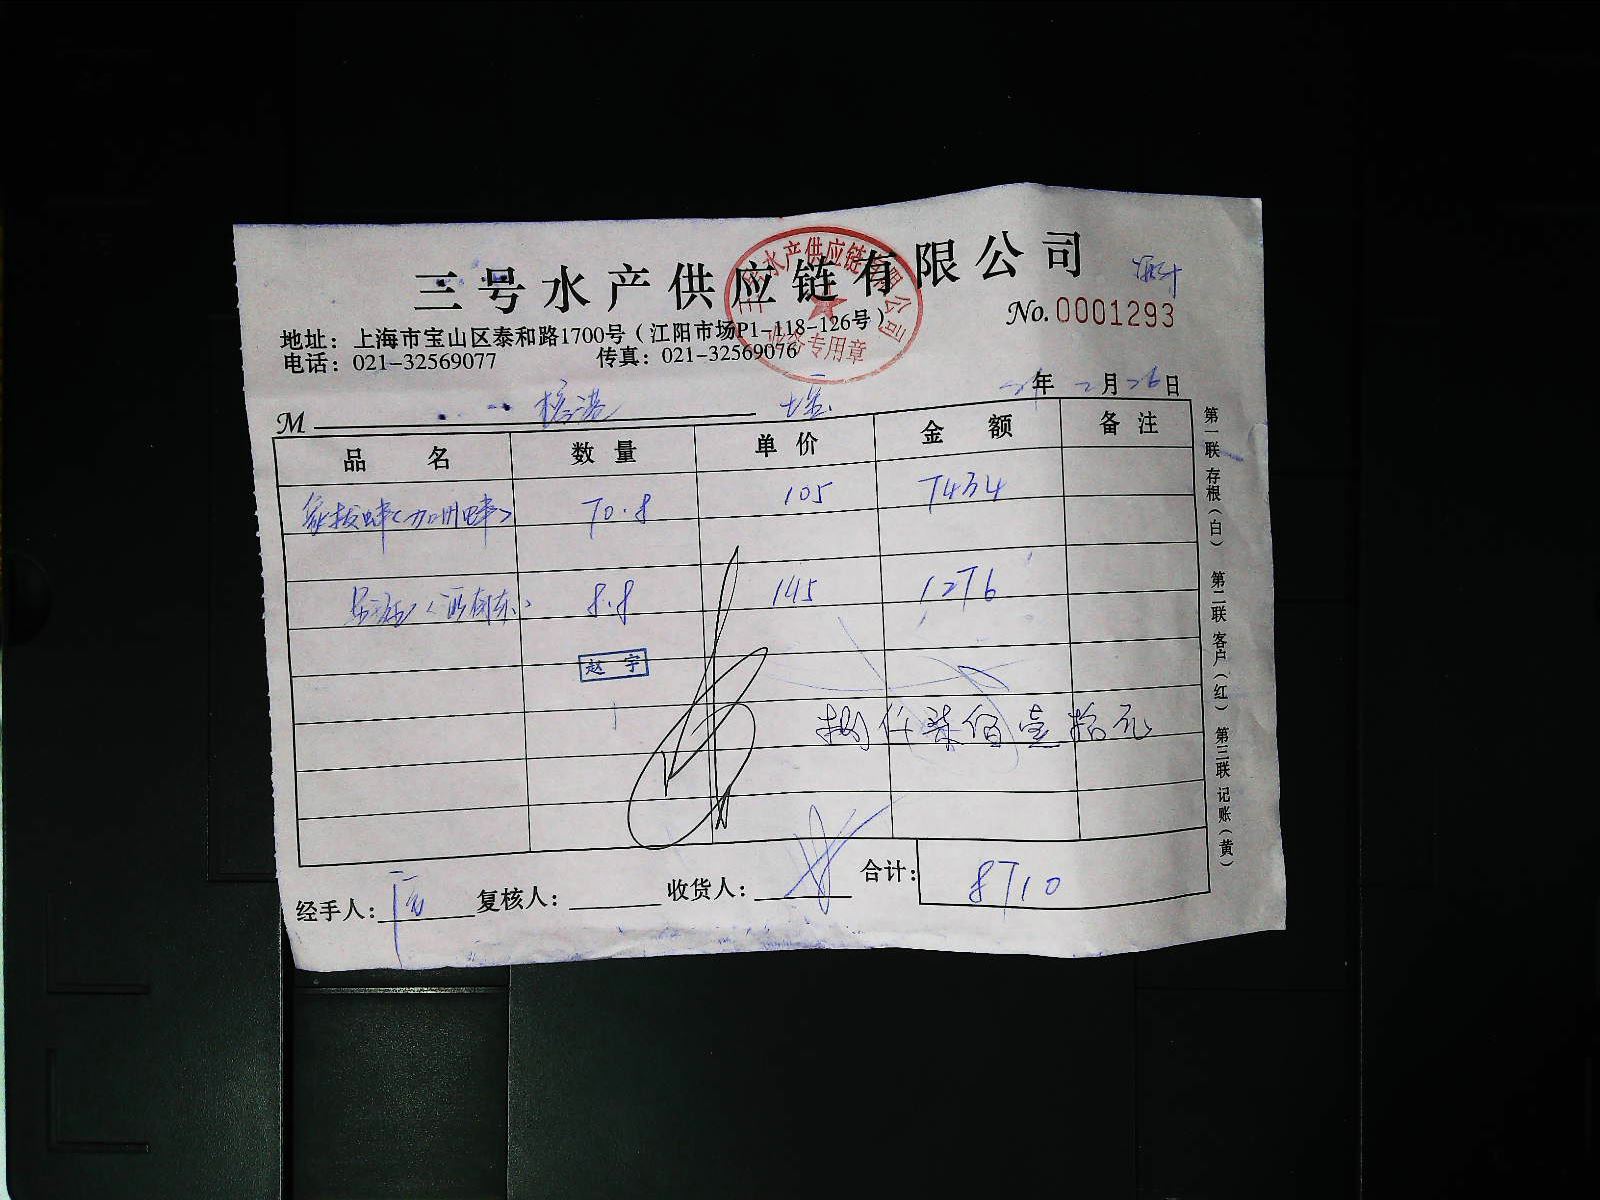 三号水产供应链有限公司
No. 0001293
地址：上海市宝山区泰和路1700号（江阳市场P1-118-126号）
电话：021-32569077 传真：021-32569076
三号水产供应链有限公司
业务专用章
年 2月26日
M
品名 数量 单价 金额 备注
象拔蚌（加州蚌） 70.8 105 7434
8.8 145 1276
赵宇
捌仟柒佰壹拾元
经手人： 复核人： 收货人： 合计：8710
第一联 存根（白） 第二联 客户（红） 第三联 记账（黄）